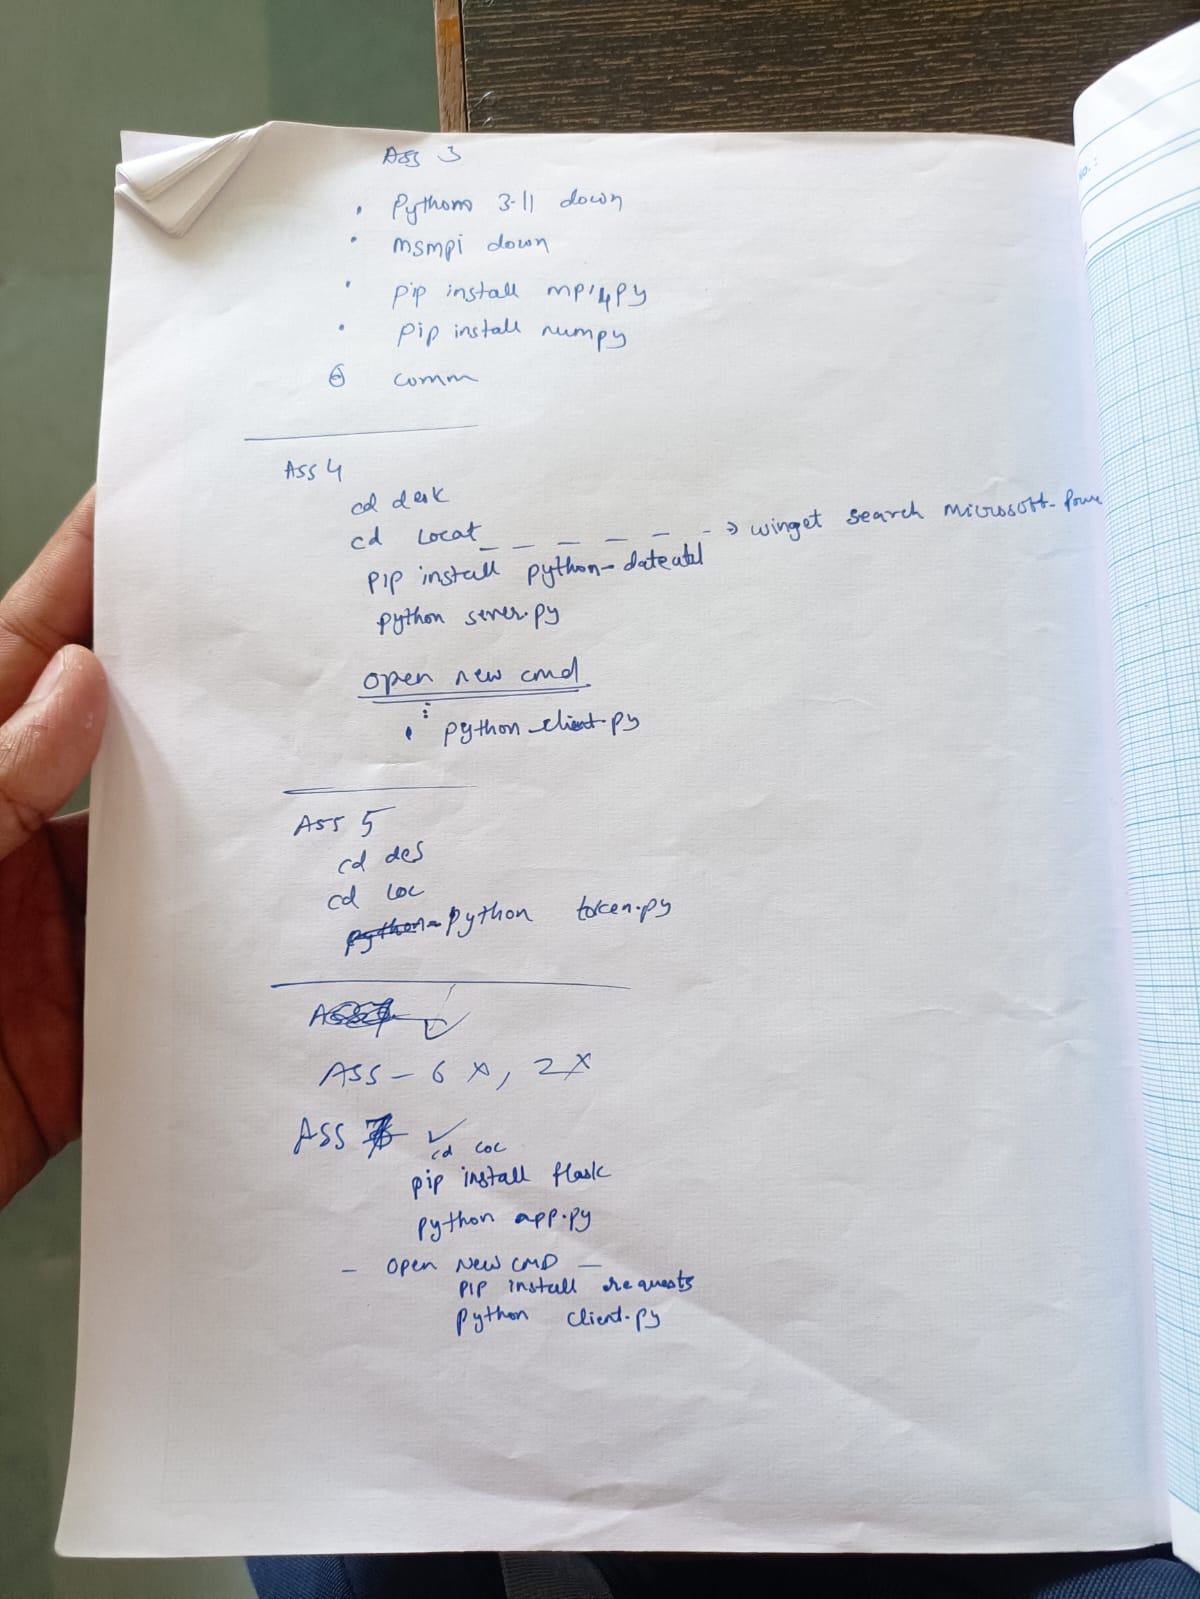 Ass 3
• Python 3.11 down
• msmpi down
• pip install mpi4py
• pip install numpy
comm
Ass 4
cd desk
cd Locat _ _ _ _ _ → winget search Microsoft.Powe
pip install python-dateutil
python server.py
open new cmd
• python client.py
Ass 5
cd des
cd Loc
python token.py
Ass - 6 x, 2 x
Ass ✓
cd loc
pip install flask
python app.py
- open New CMD -
pip install requests
python client.py
No. :